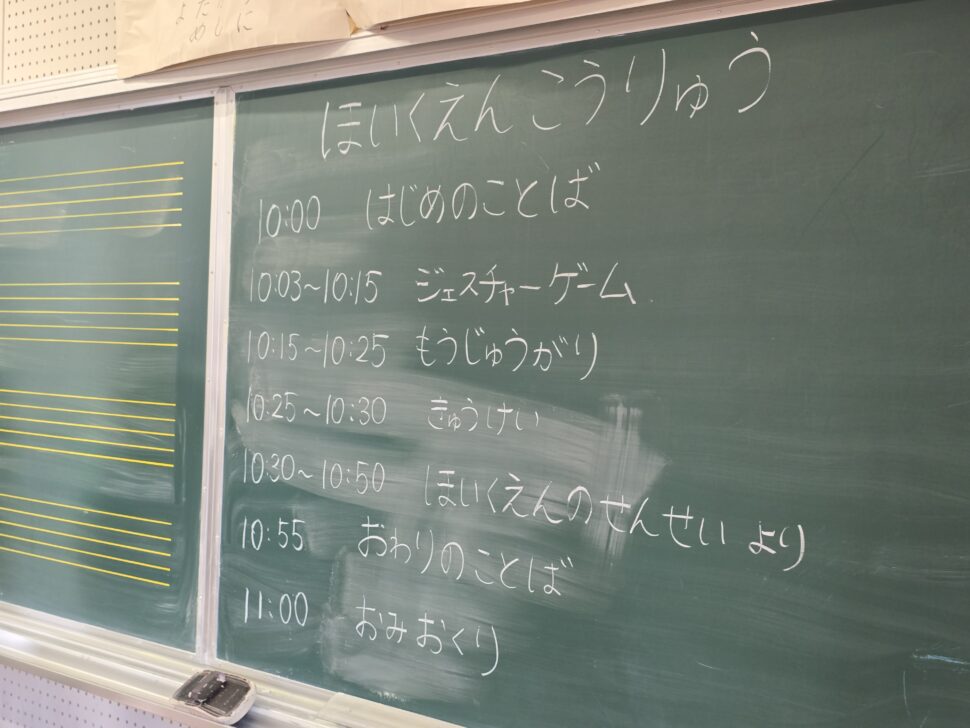 ほいくえんこうりゅう
10:00 はじめのことば
10:03～10:15 ジェスチャーゲーム
10:15～10:25 もうじゅうがり
10:25～10:30 きゅうけい
10:30～10:50 ほいくえんのせんせいより
10:55 おわりのことば
11:00 おみおくり